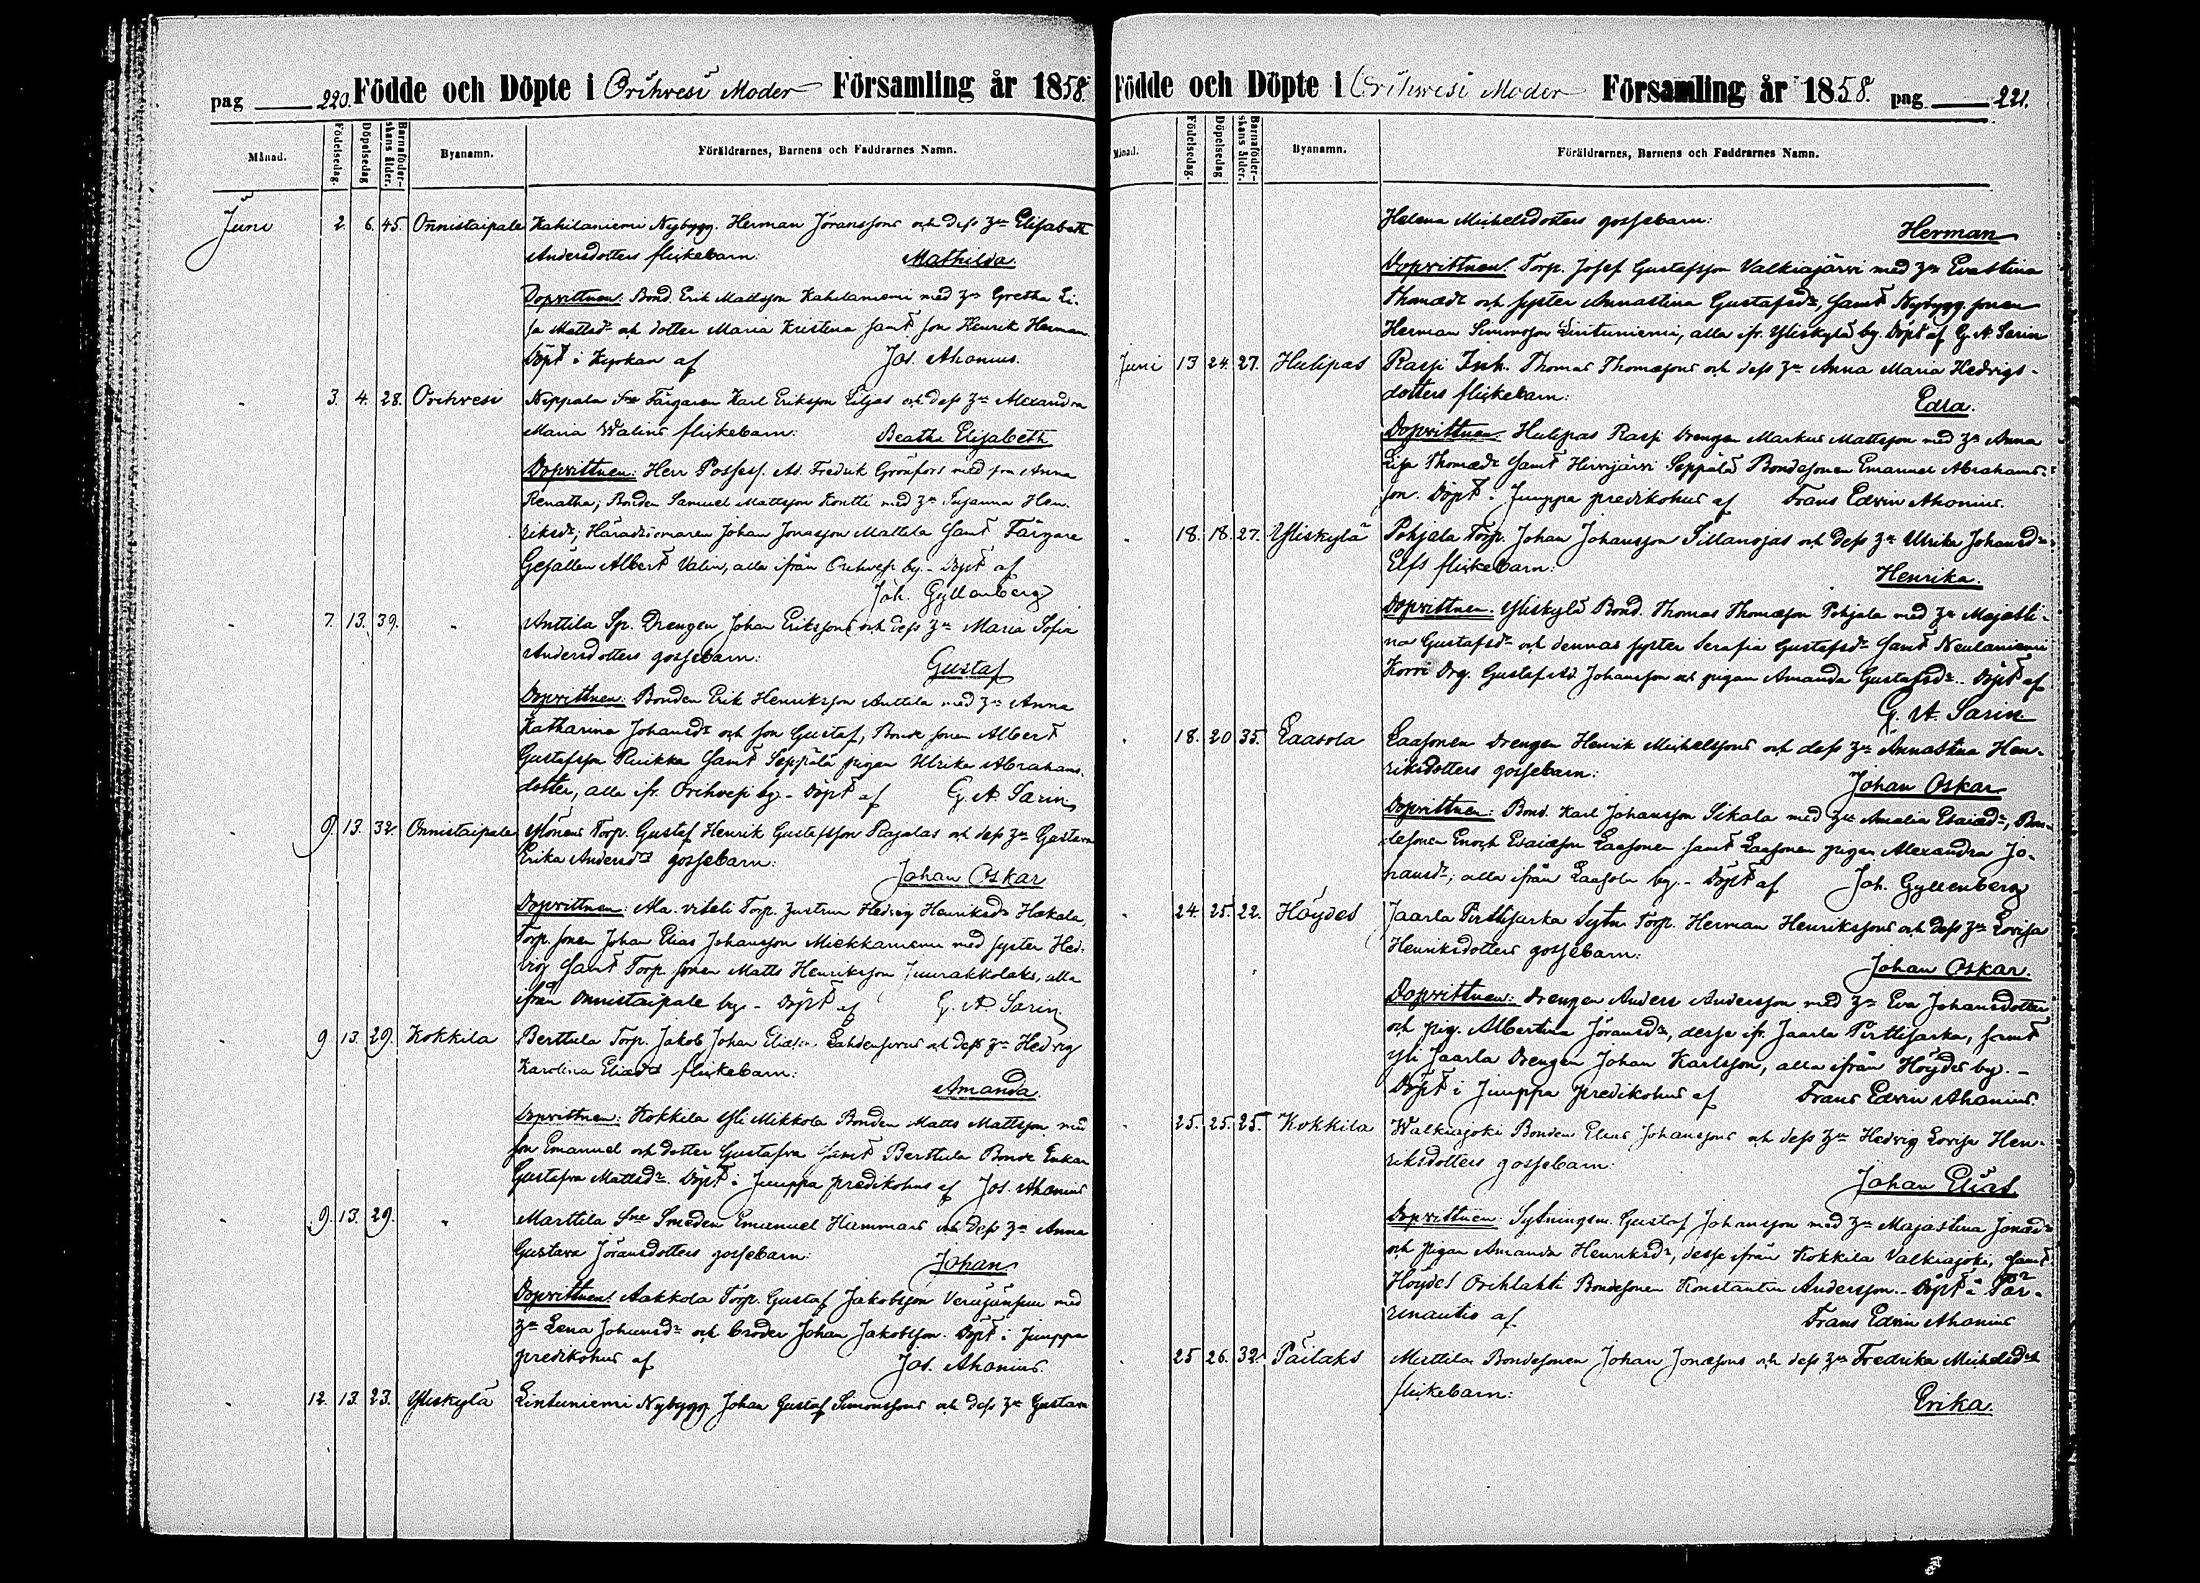 pag 220. Födde och Döpte i Orihvesi Moder Församling år 1858.
Månad. Födelsedag. Döpelsedag Barnaföderskans ålder. Byanamn. Föräldrarnes, Barnens och Faddrarnes Namn.
Juni 2. 6. 45. Onnistaipale Kahilaniemi Nybygg. Herman Göranssons och dess hu Elisabeth
Andersdotters flickebarn: Mathilda
Dopvittnen: Bond. Erik Mattsson Kahilaniemi med hu Gretha Li-
sa Mattsdr och dotter Maria Kristina samt son Henrik Herman
Döpt i Kyrkan af Jos. Ahonius.
3. 4. 28. Orihvesi Nippala Färgaren Karl Eriksson Liljas och dess hu Alexandra
Maria Walins flickebarn: Beatha Elisabeth
Dopvittnen: Herr Possess. Ad. Fredrik Grönfors med fru Anna
Renatha; Bonden Samuel Mattsson Kontti med hu Susanna Hen-
riksdr; Häradsdomaren Johan Jonasson Mattila samt Färgare
Gesällen Albert Valin, alla ifrån Orihvesi by. - Döpt af
Joh. Gyllenberg
7. 13. 39. " Anttila Sp. Drengen Johan Erikssons och dess hu Maria Sofia
Andersdotters gossebarn: Gustaf
Dopvittnen: Bonden Erik Henriksson Anttila med hu Anna
Katharina Johansdr och son Gustaf, Bonde sonen Albert
Gustafsson Ruikka samt Seppälä pigan Ulrika Abrahams-
dotter, alla ifr. Orihvesi by - Döpt af G. A. Sarin
9. 13. 32. Onnistaipale Torp. Gustaf Henrik Gustafsson Rajalas och dess hu Gustava
Erika Andersdrs gossebarn: Johan Oskar
Dopvittnen: Torp. hustrun Hedvig Henriksdr Hakala,
Torp. sonen Johan Elias Johansson Miekkaniemi med syster Hed-
vig samt Torp. sonen Matts Henriksson Juurakkolaks, alla
ifrån Onnistaipale by - Döpt af G. A. Sarin
9 13. 29. Kokkila Berttula Torp. Jakob Johan Lahdensivus och dess hu Hedvig
Karolina Eliaedrs flickebarn:
Amanda.
Dopvittnen: Kokkila Yli Mikkola Bonden Matts Mattsson med
son Emanuel och dotter Gustafva samt Berttula Bonde Enkan
Gustafva Mattsdr. Döpt i Juuppa predikohus af Jos. Ahonius
9. 13. 29. " Marttila Smeden Emanuel Hammars och dess hu Anna
Gustava Göransdotters gossebarn: Johan
Dopvittnen: Aakkola Torp. Gustaf Jakobsson med
hu Lena Johansdr och broder Johan Jakobsson. Döpt i Juuppa
predikohus af Jos. Ahonius
12. 13. 23. Yliskylä Lintuniemi Nybygg. Johan Gustaf Simonssons och dess hu Gustava
Födde och Döpte i Orihwesi Moder Församling år 1858. pag 221.
Månad. Födelsedag. Döpelsedag Barnaföderskans ålder. Byanamn. Föräldrarnes, Barnens och Faddrarnes Namn.
Helena Michelsdotters gossebarn: Herman
Dopvittnen: Torp. Josef Gustafsson Valkiajärvi med hu Evastina
Thomædr och syster Annastina Gustafsdr, samt Nybygg. sonen
Herman Simonsson Lintuniemi, alla ifr. Yliskylä by. Döpt af G. A. Sarin
Juni 13 24. 27. Hulipas Rassi Inh. Thomas Thomæsons och dess hu Anna Maria Hedvigs-
dotters flickebarn: Edla.
Dopvittnen: Hulipas Rassi Drengen Markus Mattsson med hu Anna
Lisa Thomædr samt Hirvijärvi Seppälä Bondesonen Emanuel Abrahams-
son. Döpt i Juuppa predikohus af Frans Edvin Ahonius.
18. 18. 27. Yliskylä Pohjala Torp. Johan Johansson Sillanojas och dess hu Ulrika Johansdr
Elfs flickebarn: Henrika.
Dopvittnen: Yliskylä Bond. Thomas Thomæson Pohjala med hu Majasti-
na Gustafsdr och dennas syster Serafia Gustafsdr samt Neulaniemi
Korri Drg. Gustaf Ad. Johansson och pigan Amanda Gustafsdr. - Döpt af
G. A. Sarin
18. 20 35. Laasola Laasonen Drengen Henrik Michelssons och dess hu Annastina Hen-
riksdotters gossebarn: Johan Oskar
Dopvittnen: Bond. Karl Johansson Sikala med hu Amalia Esaiædr, Bon-
desonen Enoch Esaiæson Laasonen samt Laasonen pigan Alexandra Jo-
hansdr, alla ifrån Laasola by. - Döpt af Joh. Gyllenberg
24. 25. 22. Höydes Jaarla Pirttisarka Sytn. Torp. Herman Henrikssons och dess hu Lovisa
Henriksdotters gossebarn: Johan Oskar.
Dopvittnen: Drengen Anders Andersson med hu Eva Johansdotter
och pig. Albertina Göransdr, desse ifr. Jaarla Pirttisarka, samt
Yli Jaarla Drengen Johan Karlsson, alla ifrån Höydes by. -
Döpt i Juuppa predikohus af Frans Edvin Ahonius.
25. 25. 25. Kokkila Walkiajoki Bonden Elias Johanssons och dess hu Hedvig Lovisa Hen-
riksdotters gossebarn:
Johan Elias
Dopvittnen: Sytningsm. Gustaf Johansson med hu Majastina Jonædr
och pigan Amanda Henriksdr, desse ifrån Kokkila Valkiajoki, samt
Höydes Orihlahti Bondesonen Konstantin Andersson. - Döpt i
af Frans Edvin Ahonius
25 26. 32. Päilaks Mattila Bondesonen Johan Jonæsons och dess hu Fredrika Michelsdrs
flickebarn: Erika.